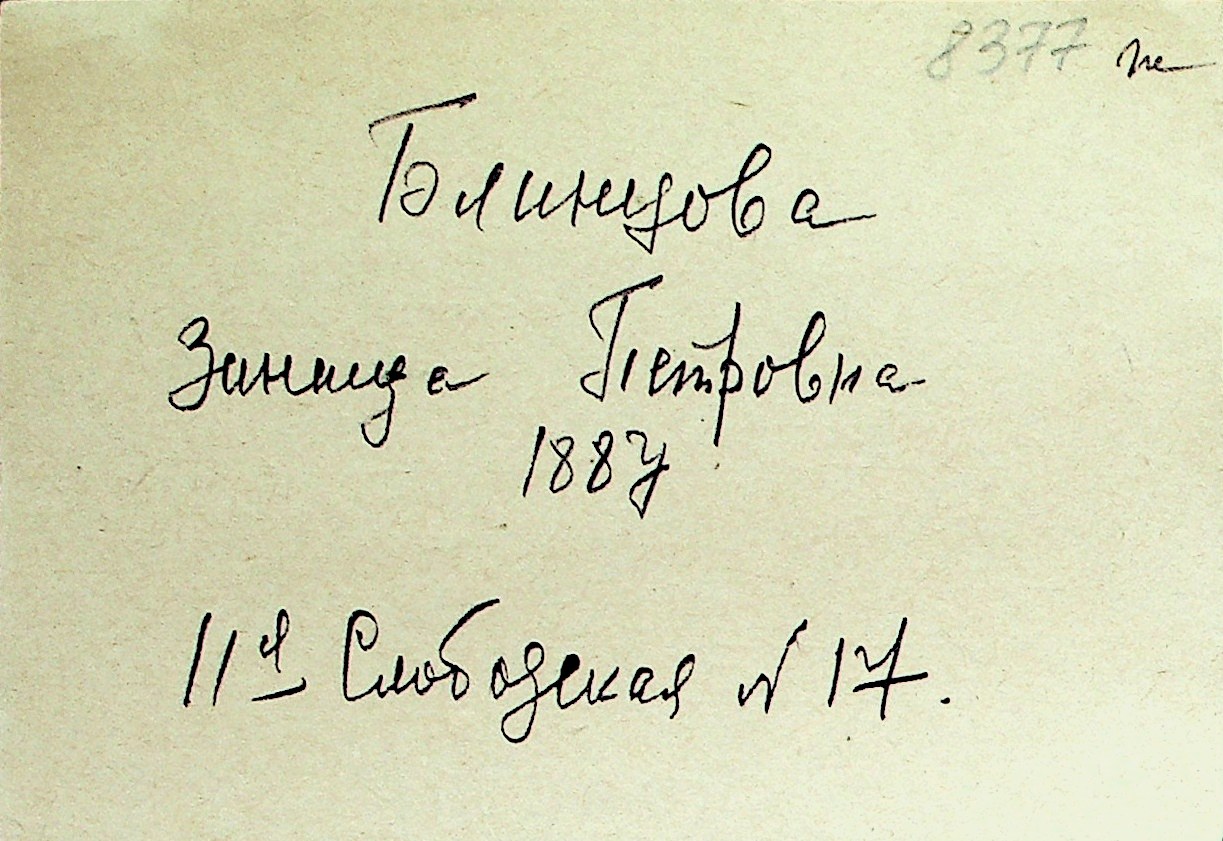 8377
Блинцова
Зинаида Петровна
1887
11я Слободская N 17.